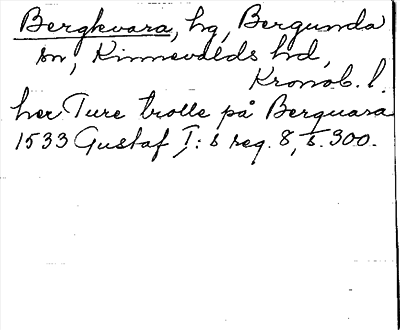 Bergkvara, hg, Bergunda
sn, Kinnevalds hd,
Kronob. l.
her Ture trolle på Berquara
1533 Gustaf I:s reg. 8, s. 300.